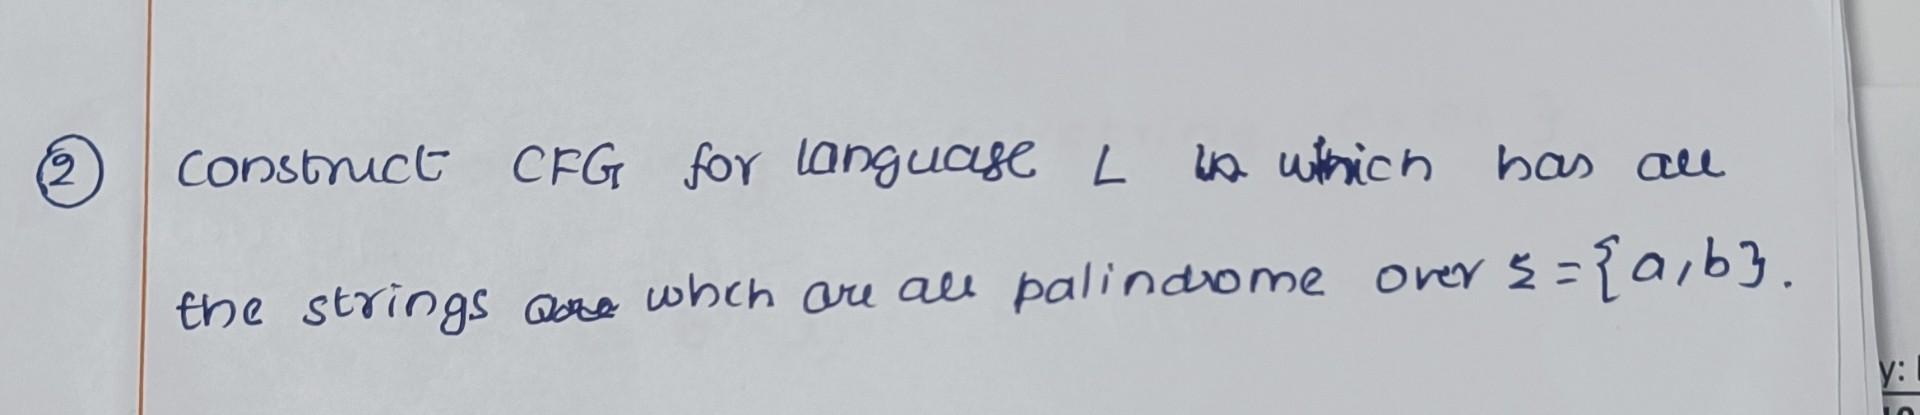 ② Construct CFG for language L which has all
the strings whch are all palindrome over Σ = {a,b}.
y: